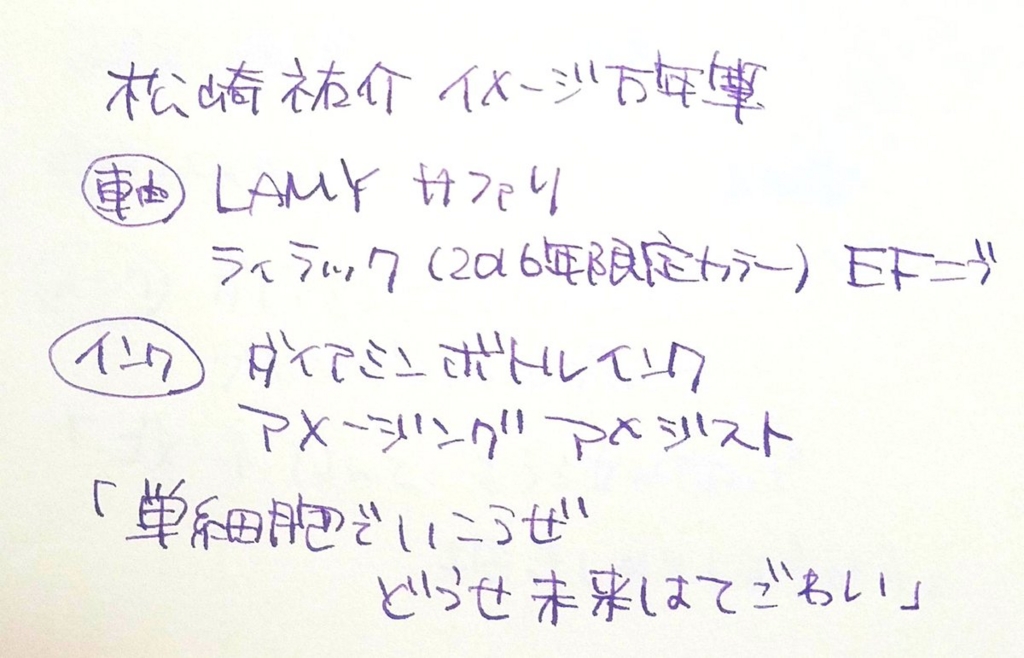 松崎祐介 イメージ万年筆
軸 LAMY サファリ
ライラック (2016年限定カラー) EFニブ
インク ダイアミン ボトルインク
アメージング アメジスト
「単細胞でいこうぜ
どうせ未来はてごわい」